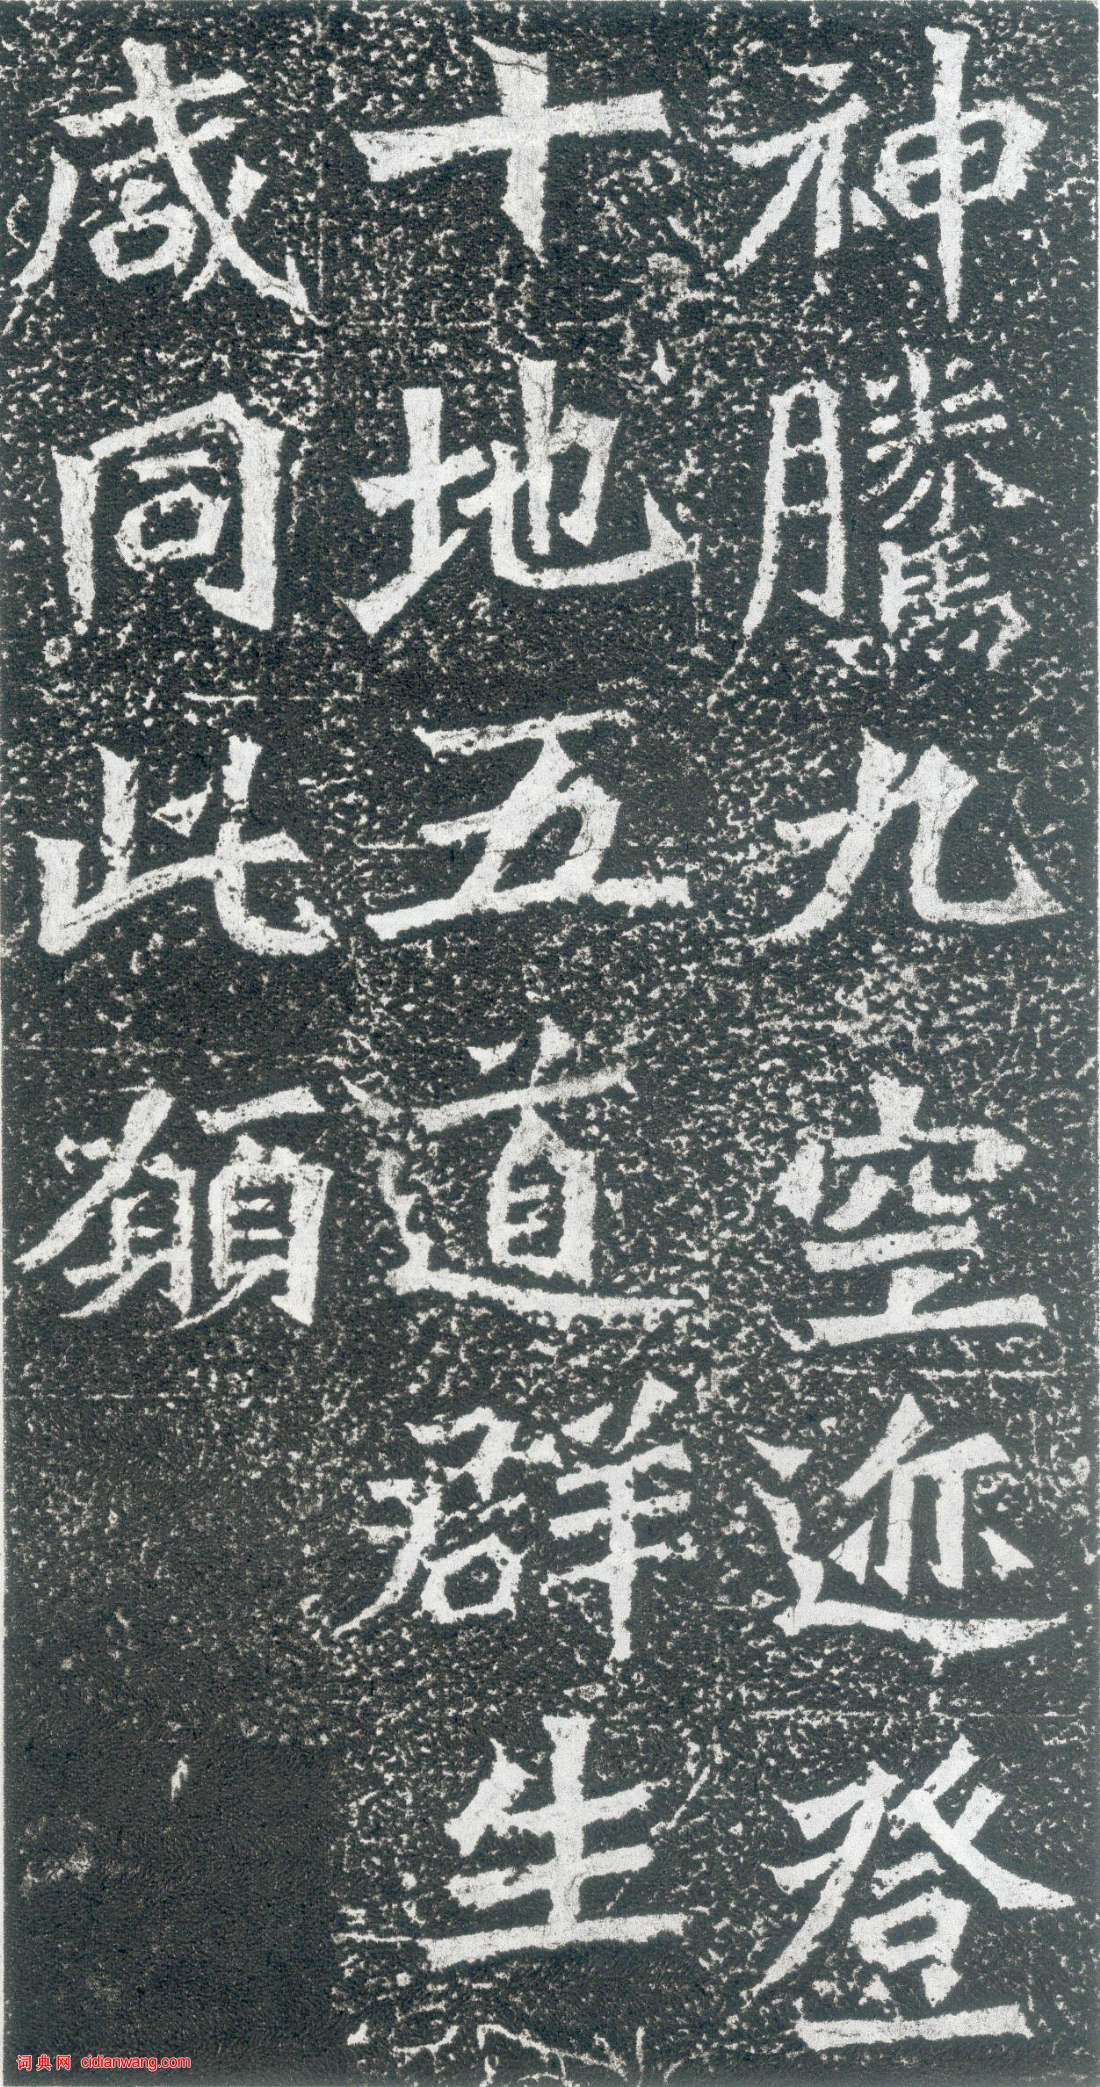 神騰九空迹登
十地五道群生
咸同此願
词典网 cidianwang.com